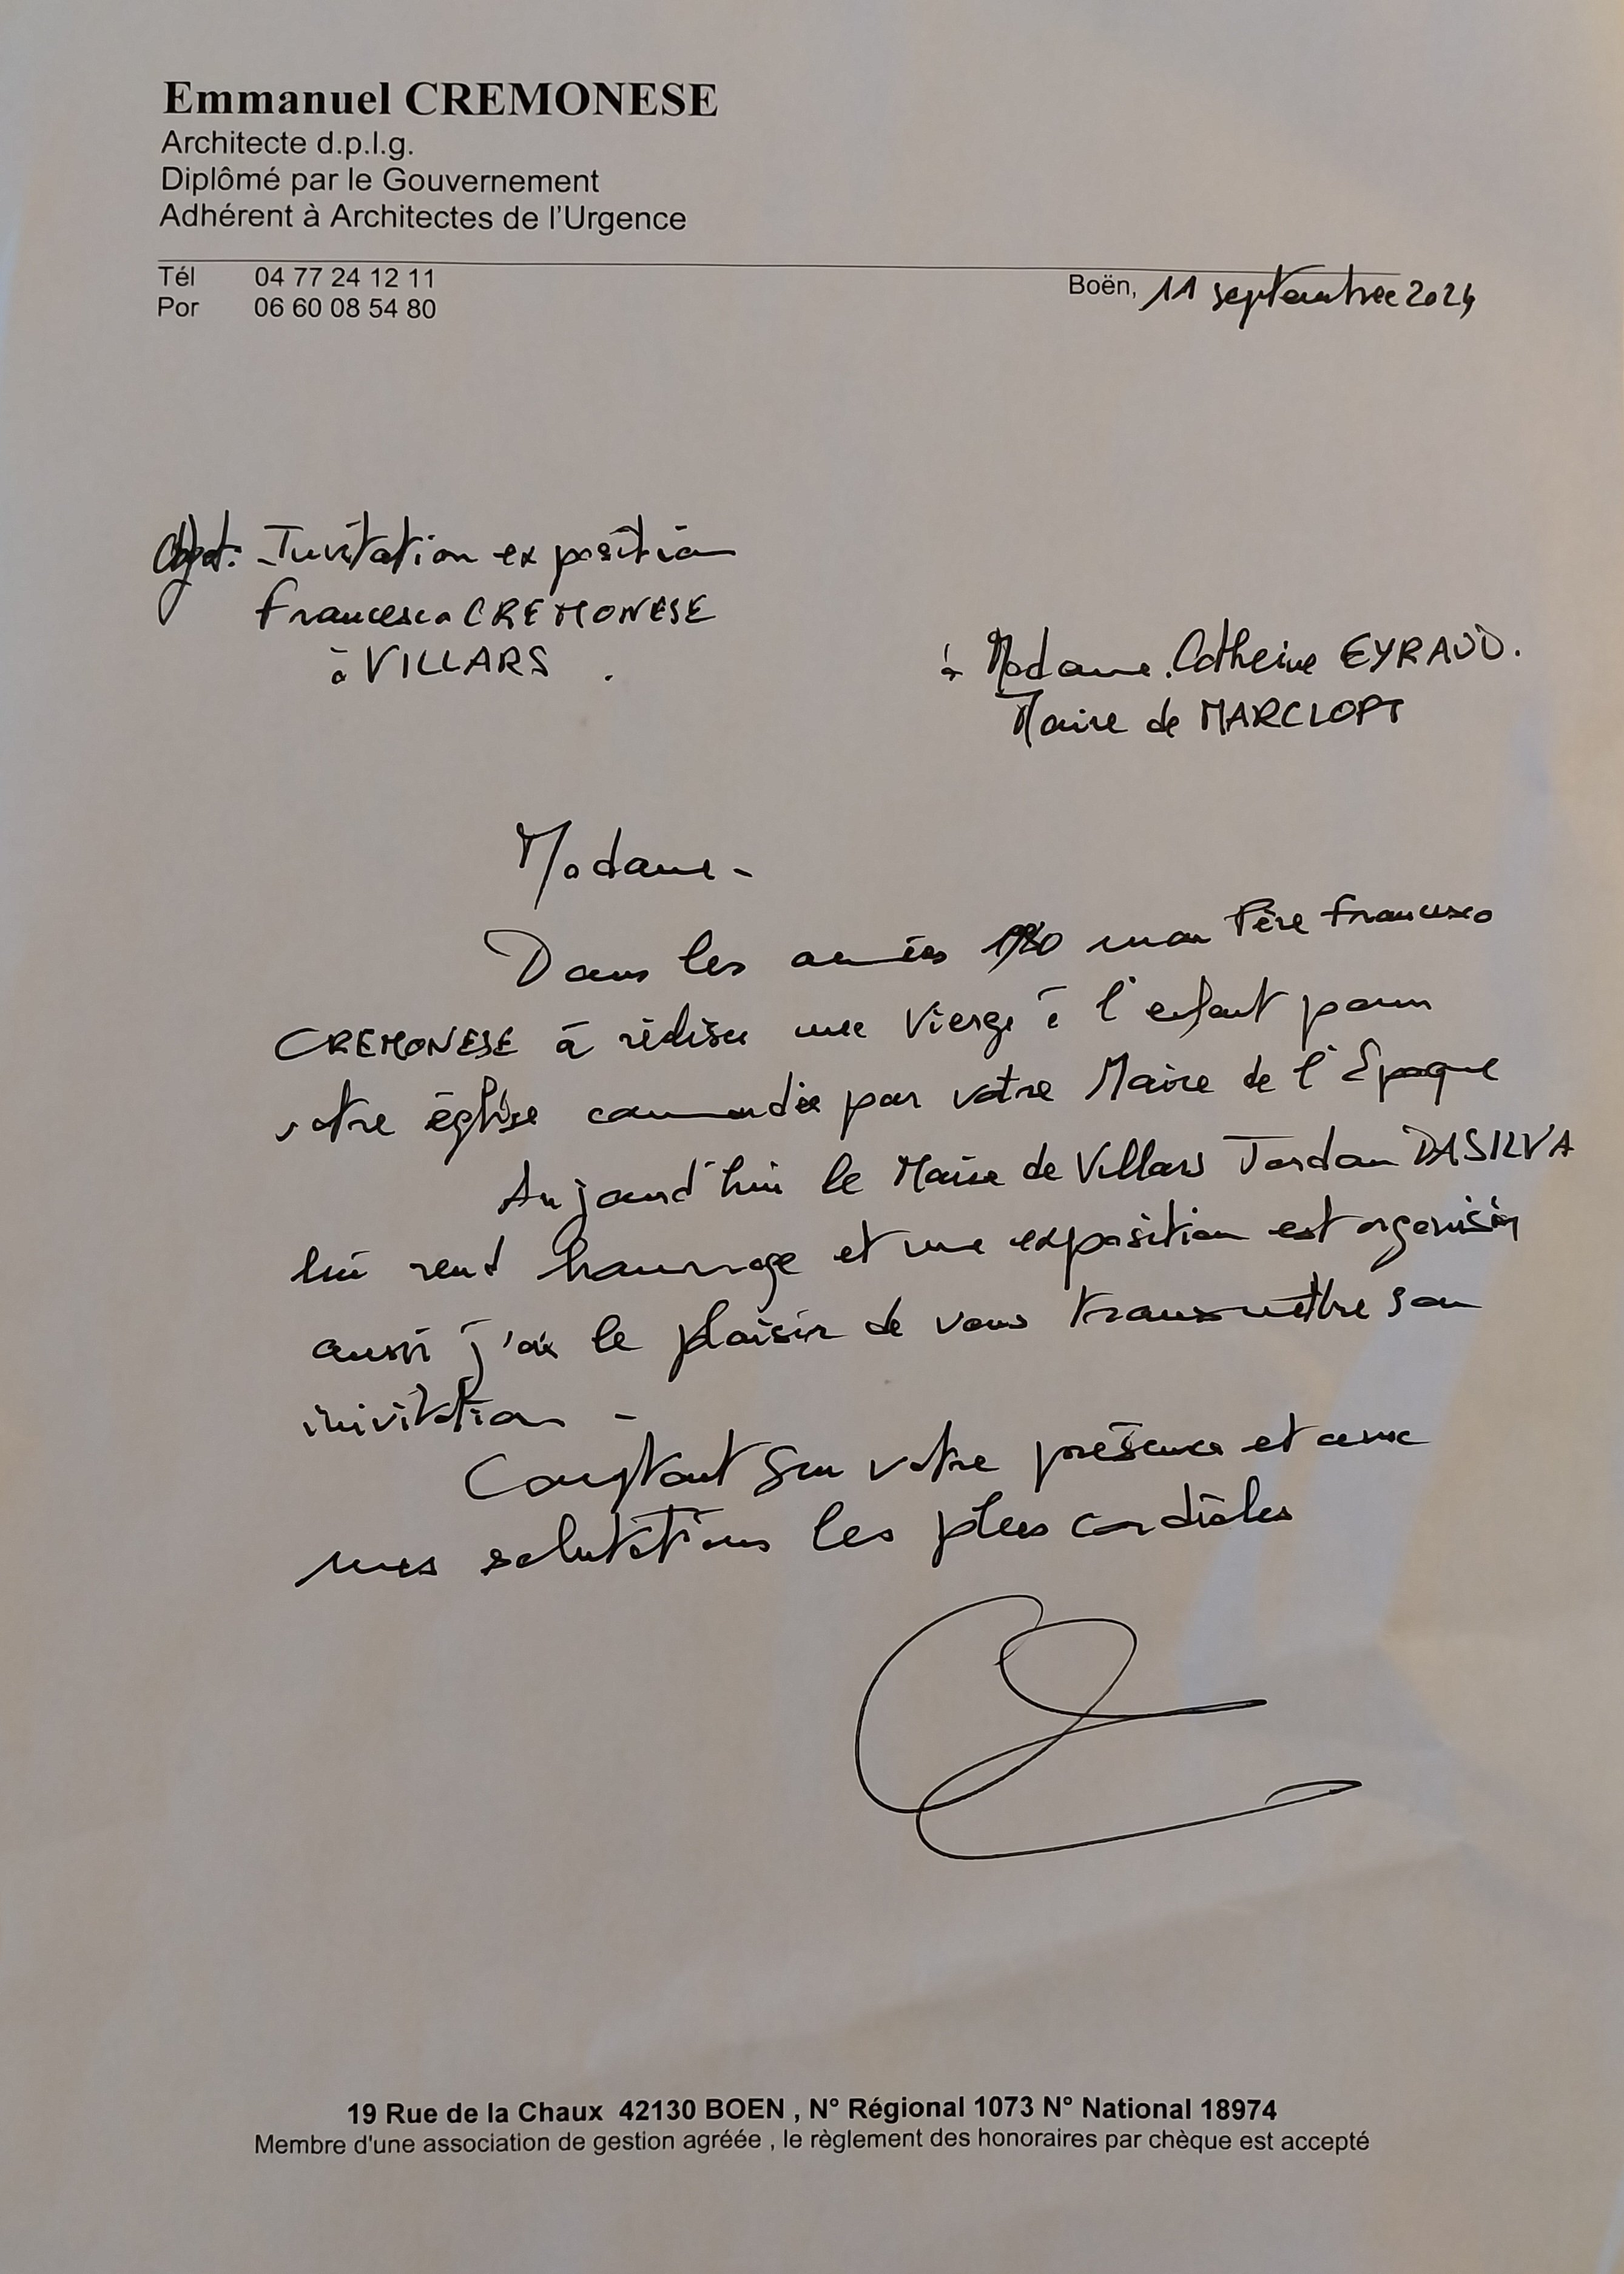 Emmanuel CREMONESE
Architecte d.p.l.g.
Diplômé par le Gouvernement
Adhérent à Architectes de l'Urgence
Tél 04 77 24 12 11
Por 06 60 08 54 80
Boën, 11 septembre 2024
Objet: Invitation exposition
Francesco CREMONESE
à VILLARS.
à Madame Catherine EYRAUD.
Maire de MARCLOPT
Madame -
Dans les années 1980 mon Père Francesco
CREMONESE à réalisé une Vierge à l'enfant pour
votre église commandée par votre Maire de l'Epoque
Aujourd'hui le Maire de Villars Jordan DASILVA
lui rend hommage et une exposition est organisée
aussi j'ai le plaisir de vous transmettre son
invitation -
Comptant sur votre présence et avec
mes salutations les plus cordiales
19 Rue de la Chaux 42130 BOEN , N° Régional 1073 N° National 18974
Membre d'une association de gestion agréée , le règlement des honoraires par chèque est accepté